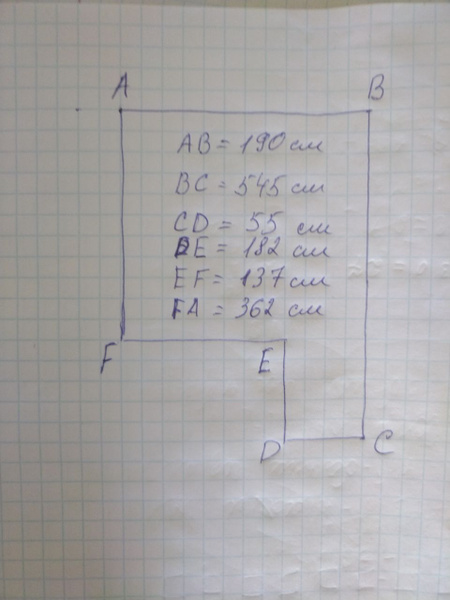 A
B
AB = 190 см
BC = 545 см
CD = 55 см
DE = 182 см
EF = 137 см
FA = 362 см
F
E
D
C